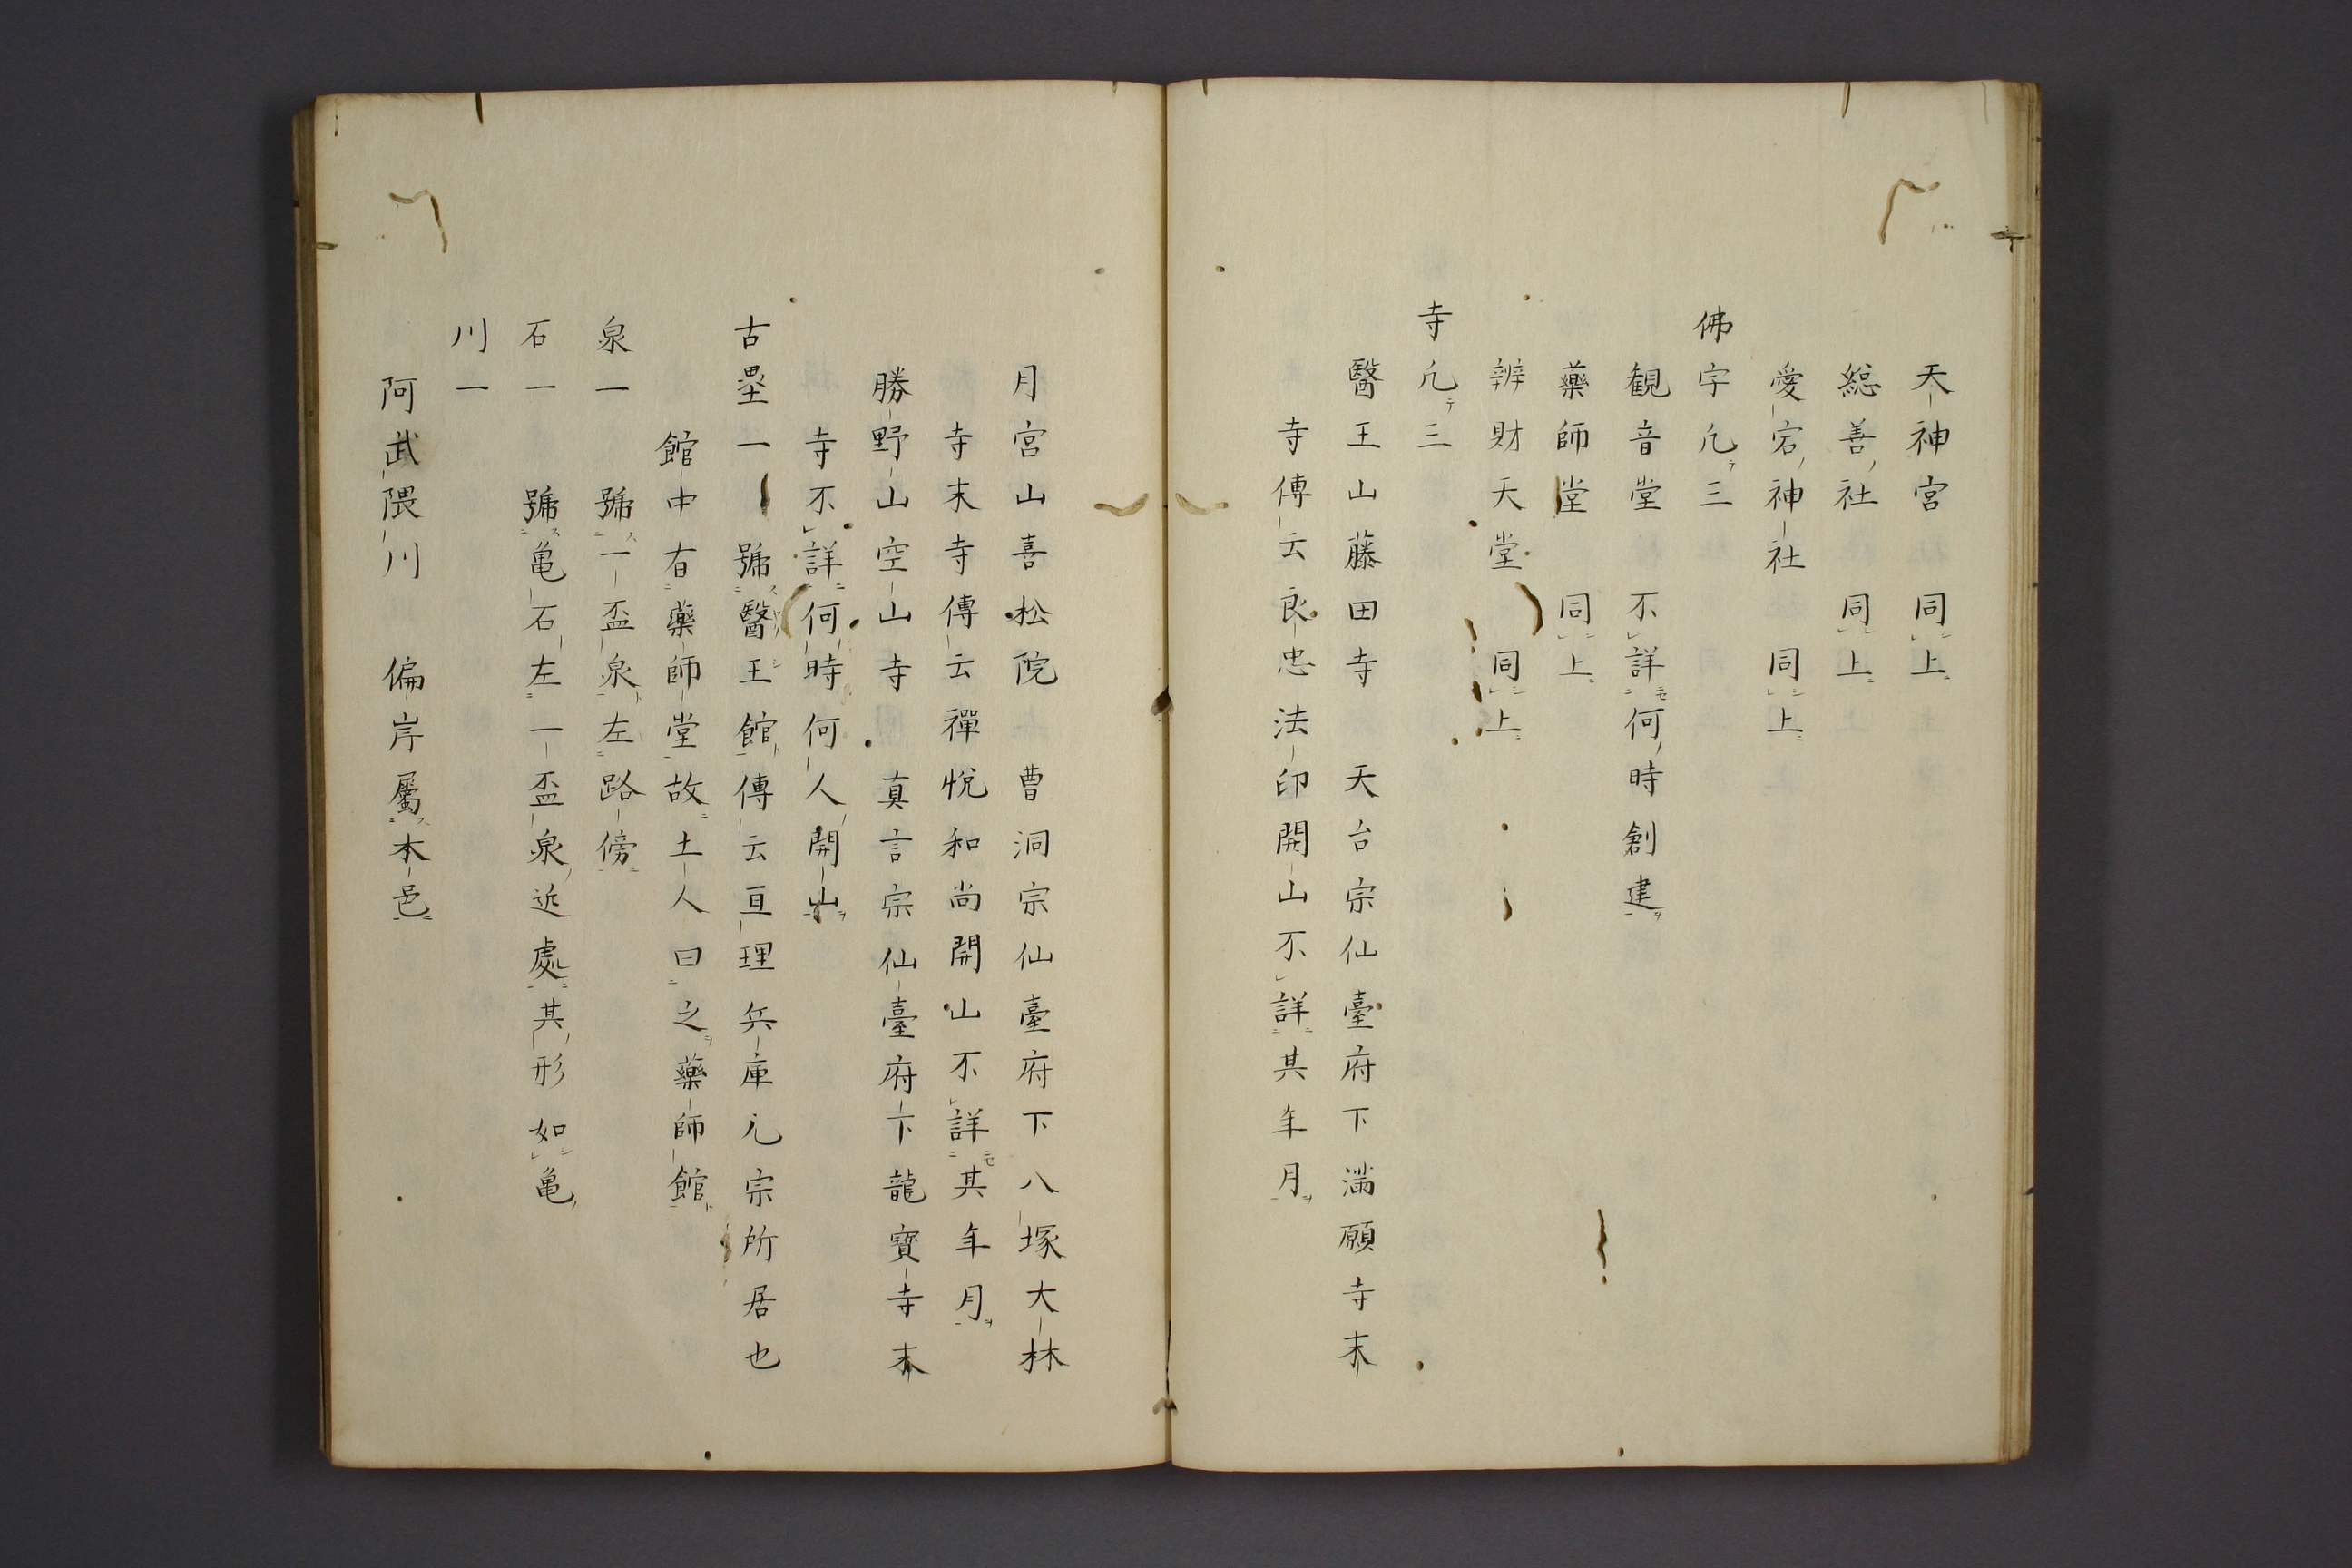 天神宮 同上
総善社 同上
愛宕神社 同上
佛宇凢三
観音堂 不詳何時創建
藥師堂 同上
辨財天堂 同上
寺凢三
醫王山藤田寺 天台宗仙臺府下滿願寺末
寺傳云良忠法印開山不詳其年月
月宮山喜松院 曹洞宗仙臺府下八塚大林
寺末寺傳云禪悅和尚開山不詳其年月
勝野山空山寺 真言宗仙臺府下龍寶寺末
寺不詳何時何人開山
古壘一 號醫王館傳云亘理兵庫元宗所居也
館中有藥師堂故土人曰之藥師館
泉一 號一盃泉左路傍
石一 號亀石左一盃泉近處其形如亀
川一
阿武隈川 偏岸屬本邑